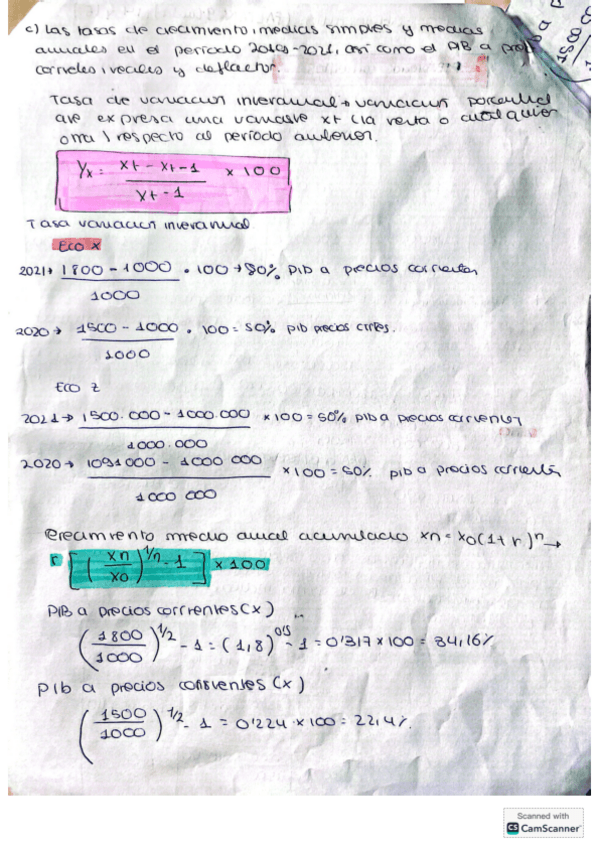 c) Las tasas de crecimiento, medias simples y medias
anuales en el período 2019-2021, así como el PIB a
corrientes, reales y deflactor.
Tasa de variacion interanual → variacion porcentual
que expresa una variable xt (la renta o cualquier
otra) respecto al período anterior.
Yx = xt - xt-1 / xt-1 × 100
Tasa variacion interanual
Eco x
2021 → 1800 - 1000 / 1000 · 100 → 80% pib a precios corrientes
2020 → 1500 - 1000 / 1000 · 100 = 50% pib precios crtes.
Eco z
2021 → 1500.000 - 1000.000 / 1000.000 × 100 = 50% pib a precios corrientes
2020 → 1091000 - 1000 000 / 1000 000 × 100 = 50% pib a precios corriente
Crecimiento medio anual acumulado xn = x0(1+r)^n →
r [(xn/x0)^1/n - 1] × 100
PIB a precios corrientes (x)
(1800/1000)^1/2 - 1 = (1,8)^0'5 - 1 = 0'317 × 100 = 34,16%
Pib a precios constantes (x)
(1500/1000)^1/2 - 1 = 0'224 × 100 = 22,4%
1500
Scanned with
CS CamScanner